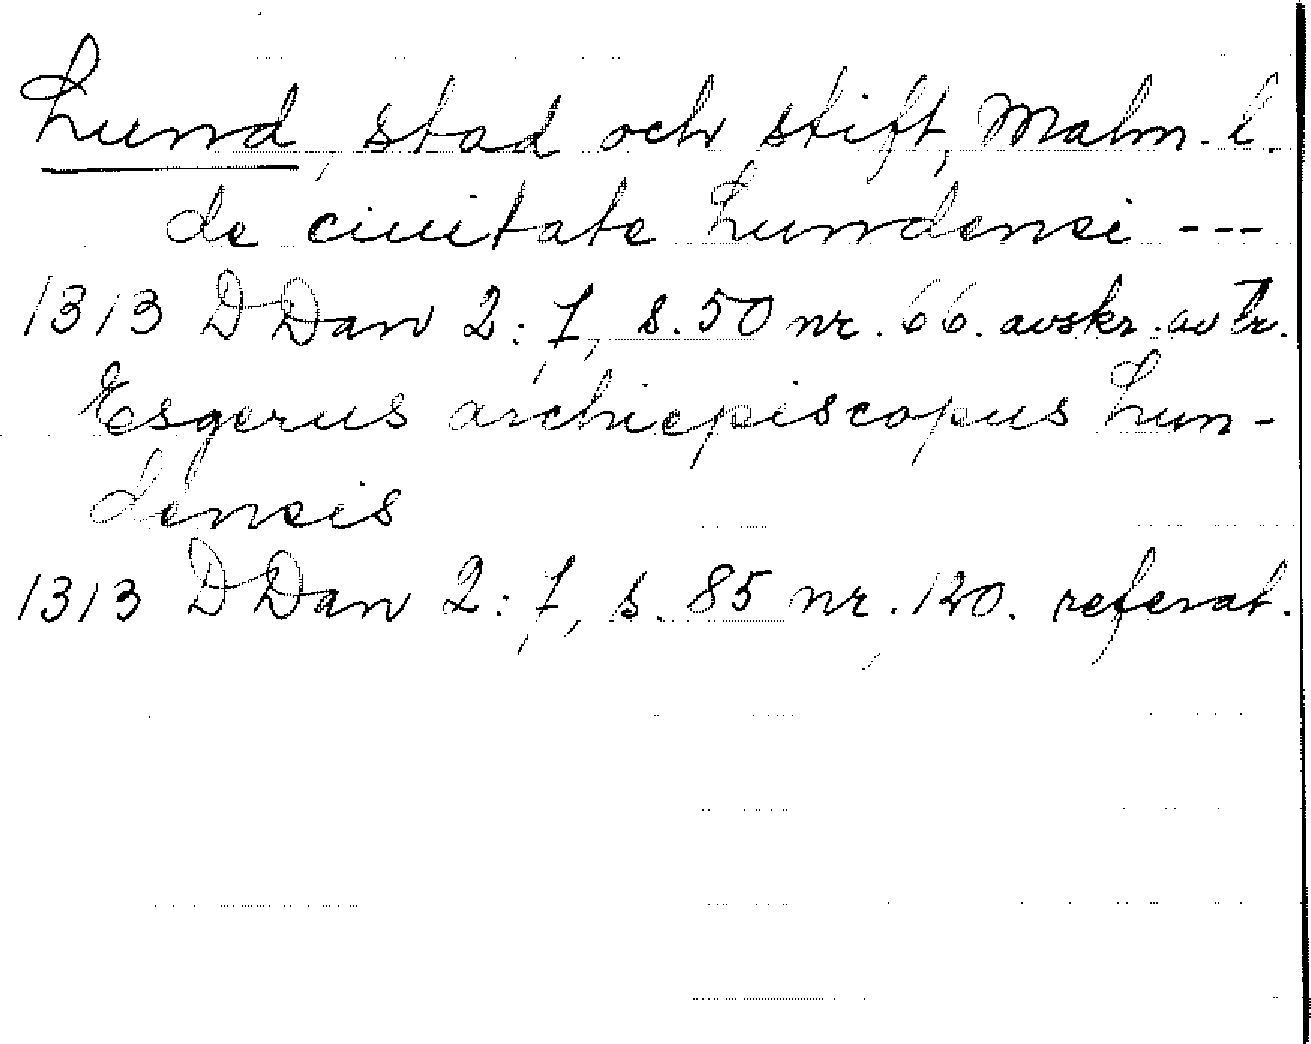 Lund, stad och stift, Malm. l.
de ciuitate Lundensi ---
1313 DDan 2:7, s. 50 nr. 66. avskr. av tr.
Esgerus archiepiscopus Lun-
densis
1313 DDan 2:7, s. 85 nr. 120. referat.